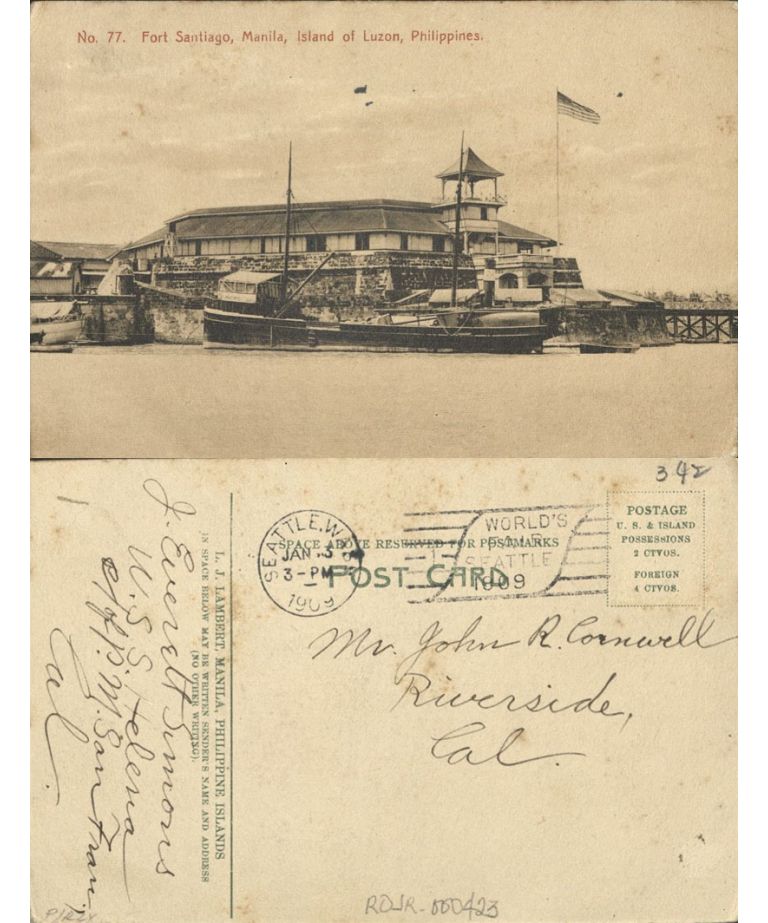 No. 77. Fort Santiago, Manila, Island of Luzon, Philippines.
342
SEATTLE, W
JAN 3
3-PM
1909
WORLD'S
FAIR
SEATTLE
1909
SPACE ABOVE RESERVED FOR POSTMARKS
POST CARD
POSTAGE
U. S. & ISLAND
POSSESSIONS
2 CTVOS.
FOREIGN
4 CTVOS.
Mr. John R. Cornwell
Riverside,
Cal.
L. J. LAMBERT, MANILA, PHILIPPINE ISLANDS
IN SPACE BELOW MAY BE WRITTEN SENDER'S NAME AND ADDRESS
(NO OTHER WRITING).
J. Everett Simons
U.S.S. Helena
c/o P.M. San Fran
Cal.
ROJR-000423